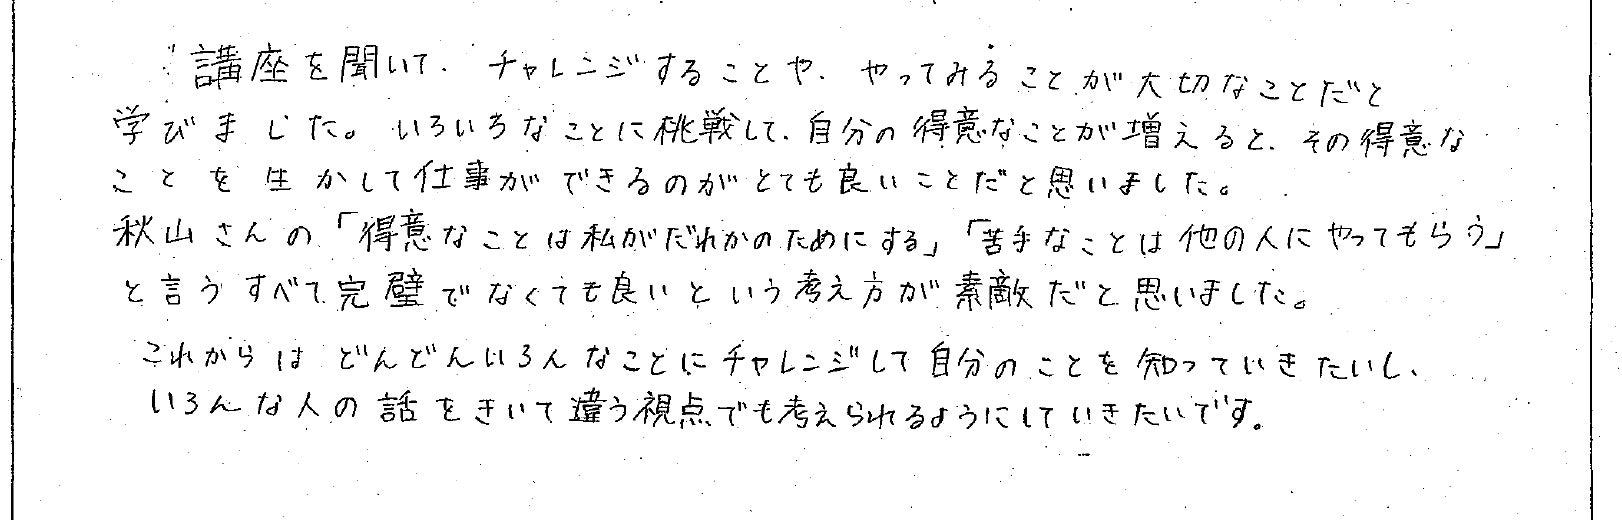 講座を聞いて、チャレンジすることや、やってみることが大切なことだと
学びました。いろいろなことに挑戦して、自分の得意なことが増えると、その得意な
ことを生かして仕事ができるのがとても良いことだと思いました。
秋山さんの「得意なことは私がだれかのためにする」「苦手なことは他の人にやってもらう」
と言うすべて完璧でなくても良いという考え方が素敵だと思いました。
これからはどんどんいろんなことにチャレンジして自分のことを知っていきたいし、
いろんな人の話をきいて違う視点でも考えられるようにしていきたいです。